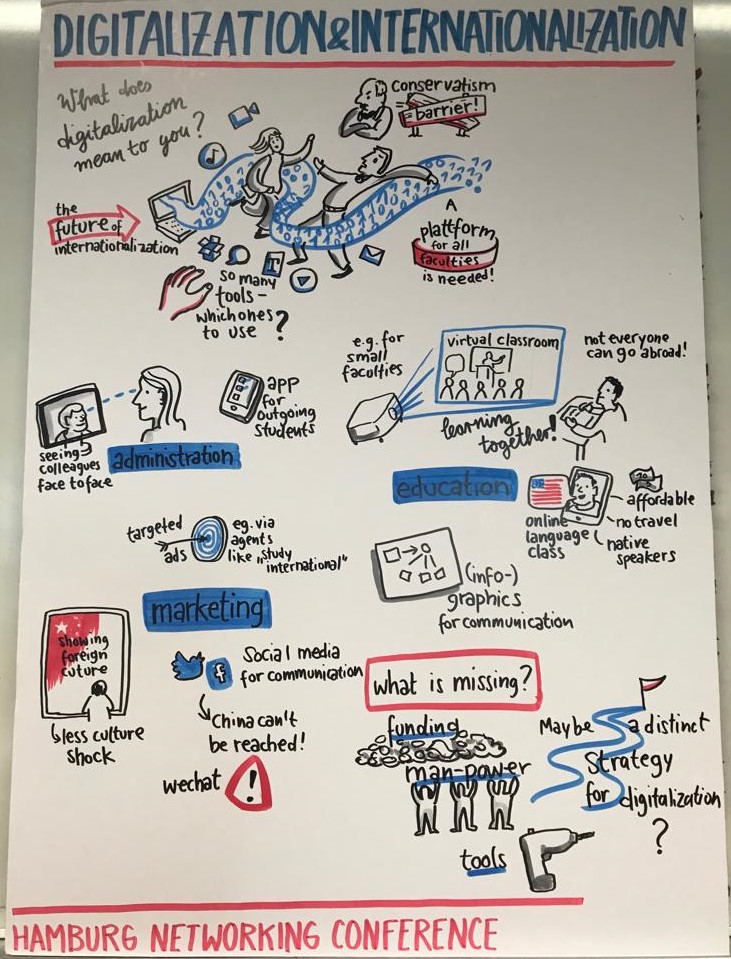 DIGITALIZATION&INTERNATIONALIZATION
What does
digitalization
mean to you?
conservatism
=barrier!
the
future of
internationalization
A
plattform
for all
faculties
is needed!
so many
tools-
which ones
to use?
e.g. for
small
faculties
virtual classroom
not everyone
can go abroad!
learning
together!
seeing
colleagues
face to face
app
for
outgoing
students
administration
education
online
language
class
affordable
no travel
native
speakers
targeted
ads
eg. via
agents
like „study
international"
marketing
(info-)
graphics
for communication
showing
foreign
cuture
less culture
shock
f
Social media
for communication
China can't
be reached!
wechat
!
what is missing?
funding
man-power
tools
Maybe a distinct
Strategy
for digitalization
?
HAMBURG NETWORKING CONFERENCE